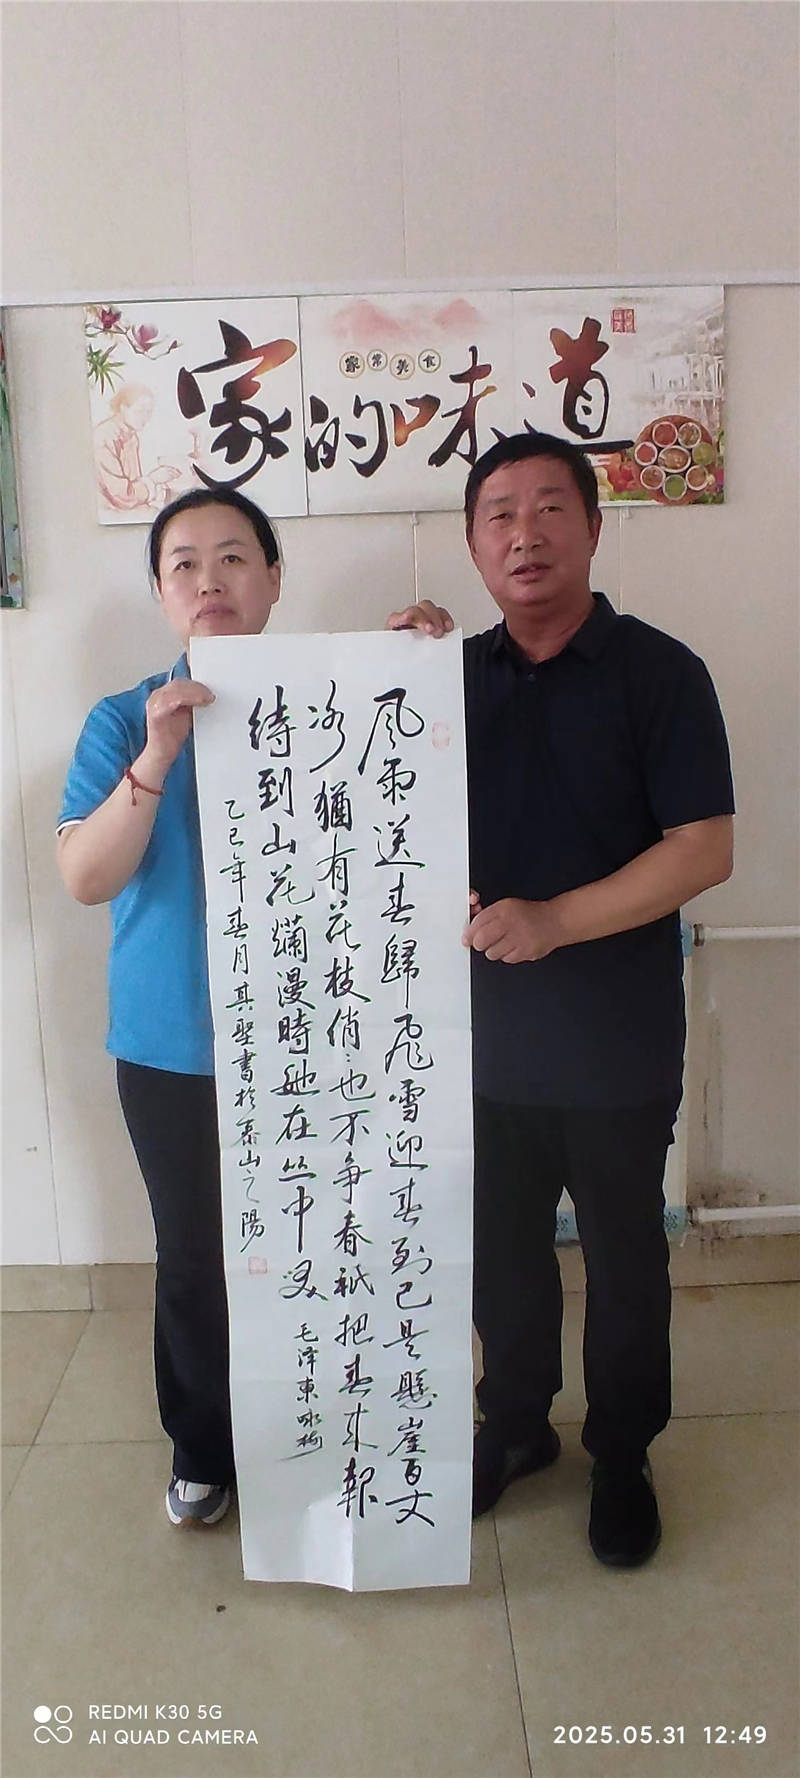 家的味道
家常美食
風雨送春歸飛雪迎春到已是懸崖百丈
冰猶有花枝俏:也不争春衹把春来報
待到山花爛漫時她在丛中笑
毛泽東咏梅
乙巳年春月其聖書於泰山之陽
REDMI K30 5G
AI QUAD CAMERA
2025.05.31 12:49